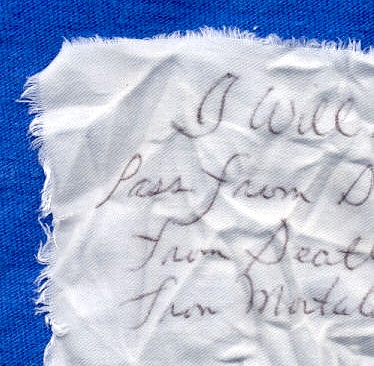 I Will
Pass from D
From Deat
from Mortal